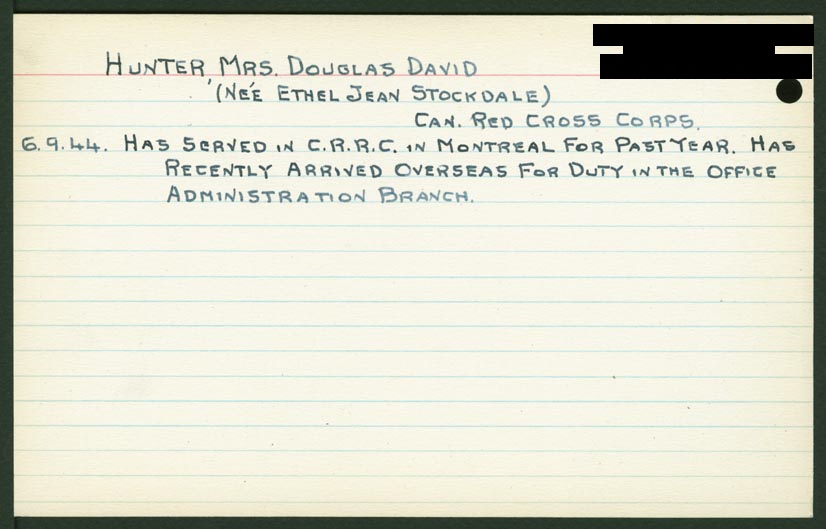 HUNTER, MRS. DOUGLAS DAVID
(NÉE ETHEL JEAN STOCKDALE)
CAN. RED CROSS CORPS.
6.9.44. HAS SERVED IN C.R.R.C. IN MONTREAL FOR PAST YEAR. HAS
RECENTLY ARRIVED OVERSEAS FOR DUTY IN THE OFFICE
ADMINISTRATION BRANCH.